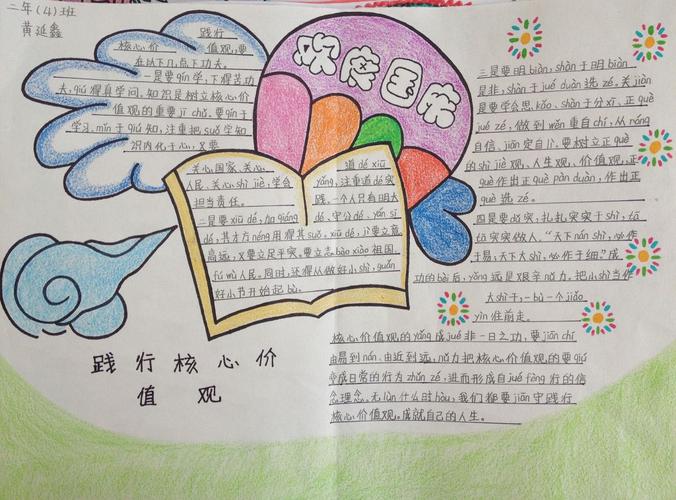 二年(4)班
黄延鑫
践行
核心价 值观,要
在以下几点下功夫。
一是要qín学,下得苦功
夫,qiú得真学问。知识是树立核心价
值观的重要jī chǔ。要qín于
学习,mǐn于qiú知,注重把suǒ学知
识内化于心,
关心国家、关心
人民、关心shì jiè,学会
担当责任。
二是要xiū dé,
dé,其才方néng用得其suǒ。
高远,又要立足平实。要立志bào xiào祖国、
fú mù人民。同时,还得从做好小shì,guǎn
好小节开始起bù。
道dé xiū
yǎng,注重道dé实
践。一个人只有明大
dé、守公dé、yán sī
三是要明biàn,shàn于明biàn
是非,shàn于jué duàn选zé。关jiàn
是要学会思kǎo、shàn于分xī、正què
jué zé,做到wěn重自chí、从róng
自信、jiān定自lì。要树立正què
的shì jiè观、人生观、价值观,正
què作出正què pàn duàn,作出正
què选zé。
四是要dǔ实,扎扎实实干shì,tā
tā实实做人。“天下nán shì,必作
于易;天下大shì,必作于细。”成
功的bèi后,yǒng远是艰辛nǔ力。把小shì当作
大shì干,一bù一个jiǎo
yìn往前走。
核心价值观的yǎng成jué非一日之功,要jiān chí
由易到nán、由近到远,nǔ力把核心价值观的要qiú
变成日常的行为zhǔn zé,进而形成自jué fèng行的信
念理念。无lùn什么时hòu,我们都要jiān守践行
核心价值观。成就自己的人生。
践行核心价
值观